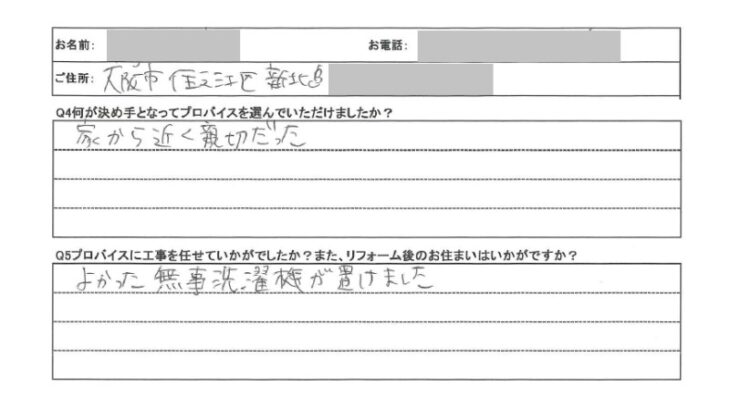 お名前: お電話:
ご住所: 大阪市住之江区新北島
Q4何が決め手となってプロバイスを選んでいただけましたか?
家から近く親切だった
Q5プロバイスに工事を任せていかがでしたか?また、リフォーム後のお住まいはいかがですか?
よかった 無事洗濯機が置けました